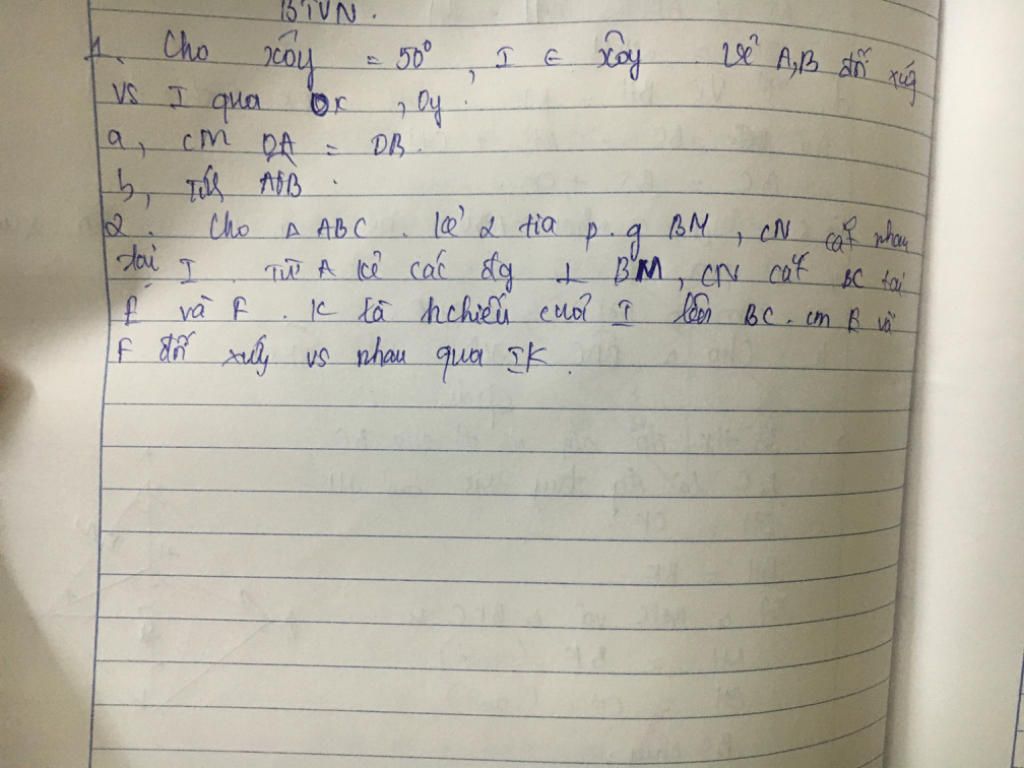 BTVN.
1. Cho xôy = 50°, I ∈ xôy. Vẽ A,B đối xứng
vs I qua Ox, Oy.
a, cm OA = OB.
b, Tính AÔB.
2. Cho Δ ABC. kẻ 2 tia p.g BM, CN cắt nhau
tại I. Từ A kẻ các đg ⊥ BM, CN cắt BC tại
E và F. K là hchiếu của I lên BC. cm E và
F đối xứng vs nhau qua IK.